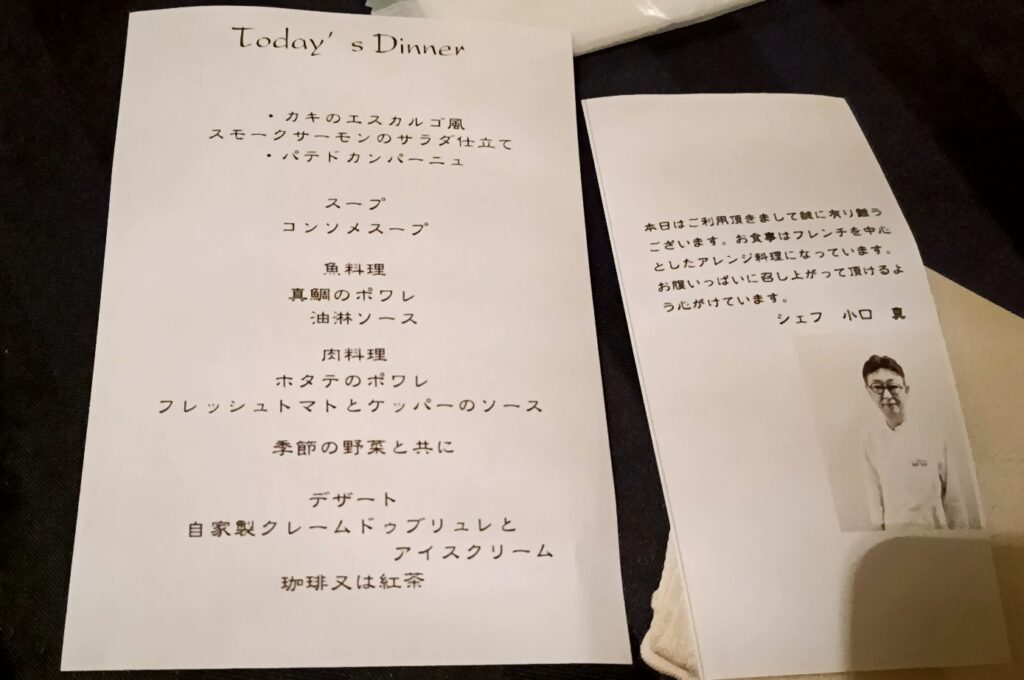 Today's Dinner
・カキのエスカルゴ風
スモークサーモンのサラダ仕立て
・パテドカンパーニュ
スープ
コンソメスープ
魚料理
真鯛のポワレ
油淋ソース
肉料理
ホタテのポワレ
フレッシュトマトとケッパーのソース
季節の野菜と共に
デザート
自家製クレームドゥブリュレと
アイスクリーム
珈琲又は紅茶
本日はご利用頂きまして誠に有り難う
ございます。お食事はフレンチを中心
としたアレンジ料理になっています。
お腹いっぱいに召し上がって頂けるよ
う心がけています。
シェフ 小口 真